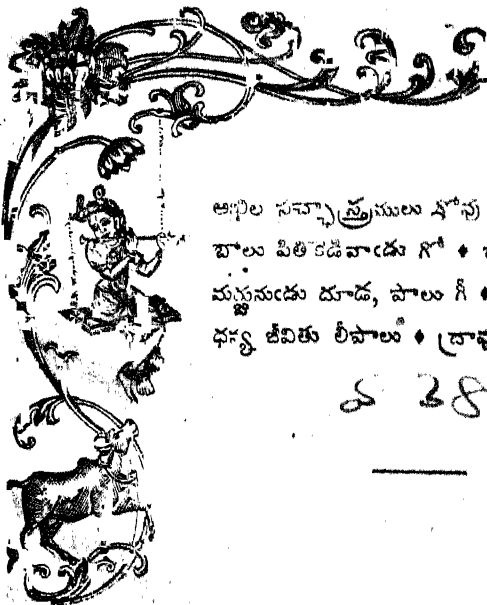 అఖిల సచ్ఛాస్త్రములు
పాలు పితికెడివాఁడు గో ♦
మర్జునుఁడు దూడ, పాలు గీ ♦
ధన్య జీవితు లీపాలు ♦
38